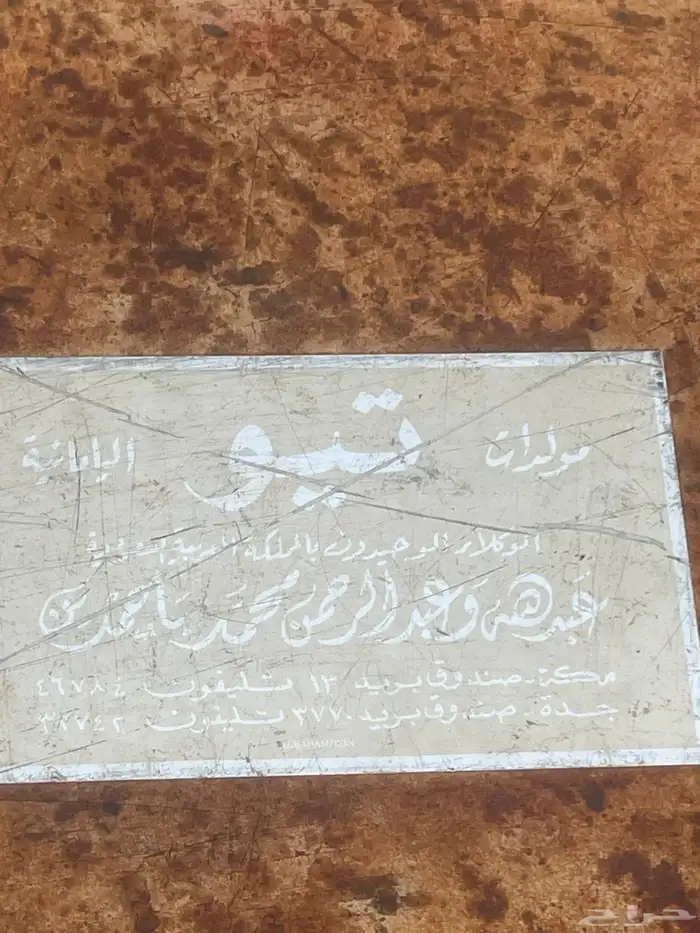 مولدات تيو اليابانية
الوكلاء الوحيدون بالمملكة العربية السعودية
عبد الله وعبد الرحمن محمد باحمدين
مكة - صندوق بريد ١٣ تليفون ٤٦٧٨٤
جدة - صندوق بريد ٣٧٧٠ تليفون ٣٨٧٤٢
حراج